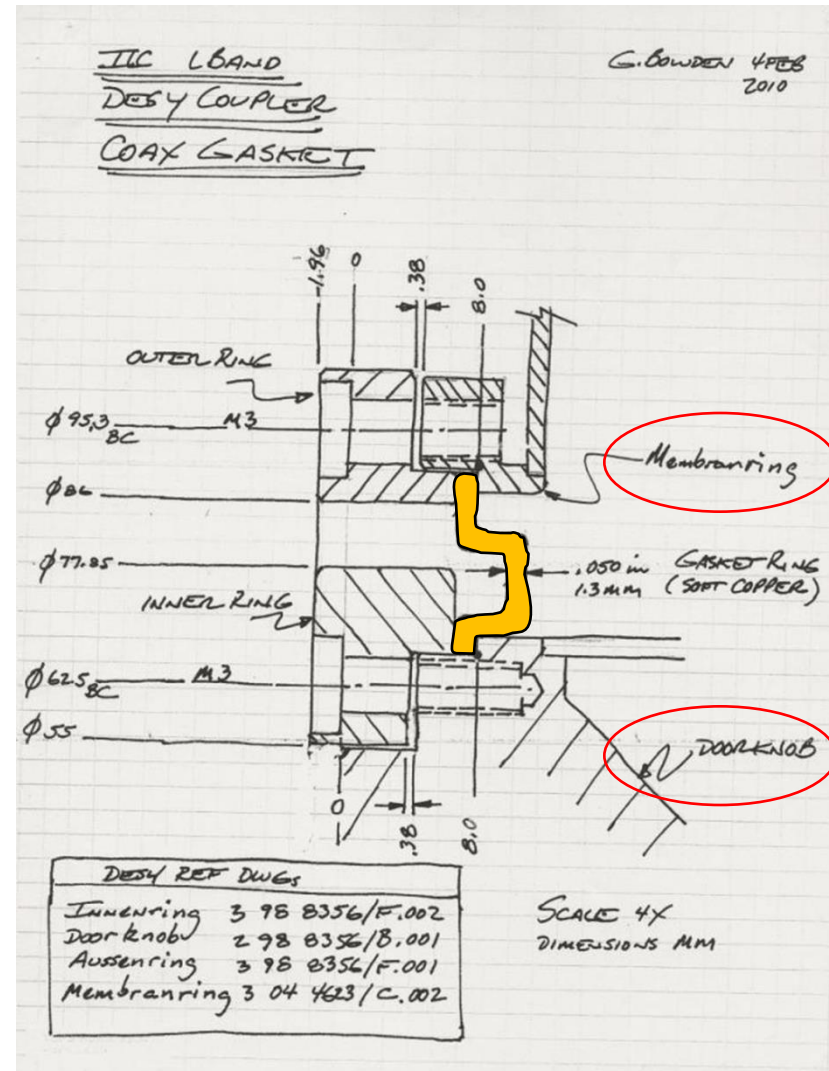 ILC LBAND
DESY COUPLER
COAX GASKET
G. BOWDEN 4 FEB
2010
-1.96
0
.38
8.0
OUTER RING
φ 95.3 BC
M3
Membranring
φ 86
φ 77.85
.050 in
1.3 MM
GASKET RING
(SOFT COPPER)
INNER RING
φ 62.5 BC
M3
φ 55
DOORKNOB
0
.38
8.0
DESY REF DWGs
Innenring 3 98 8356/F.002
Doorknob 2 98 8356/B.001
Aussenring 3 98 8356/F.001
Membranring 3 04 4623/C.002
SCALE 4X
DIMENSIONS MM